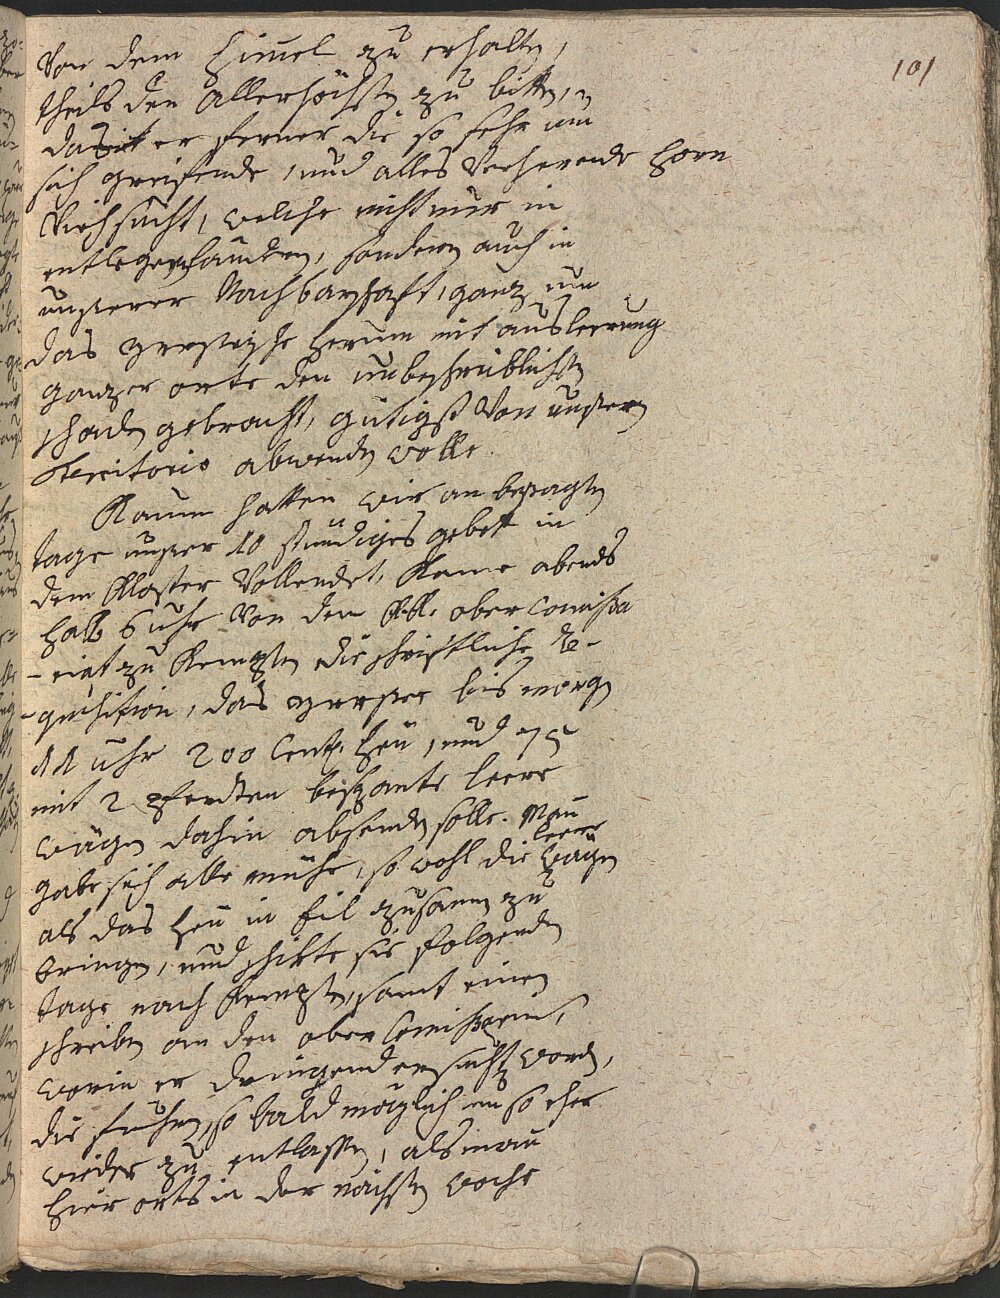 101
Von dem Himel zu erhalten,
theils den Allerhöchsten zu bitten,
damit er ferner die so sehr um
sich greifende, und alles Verherende Horn
Viehsucht, welche nicht nur in
entlegenen landen, sondern auch in
unserer Nachbarschaft, ganz um
das herum mit ausleerung
ganzer orte den unbeschreiblichsten
schaden gebracht, gütigst Von unserem
Territorio abwenden wolle.
Kaum hatten wir an besagten
tage unser 10 stündiges gebett in
dem Kloster Vollendet, Kame abends
halb 6 uhr Von dem ober Comissa
-riat zu Kempten die schriftliche Re-
-quisition, das bis morgen
11 uhr 200 Cent. heu, und 75
mit 2 Pferdten bespante leere
wägen dahin absenden solle. Man
gabe sich alle mühe, so wohl die leere wägen
als das heu in Eil zusamen zu
bringen, und schikte sie folgenden
tage nach Kempten, samt einen
schreiben an den ober Comissarium,
worin er dringend ersucht worden,
die fuhren, so bald möglich um so eher
wieder zu entlassen, als man
hier orts in der nächsten woche